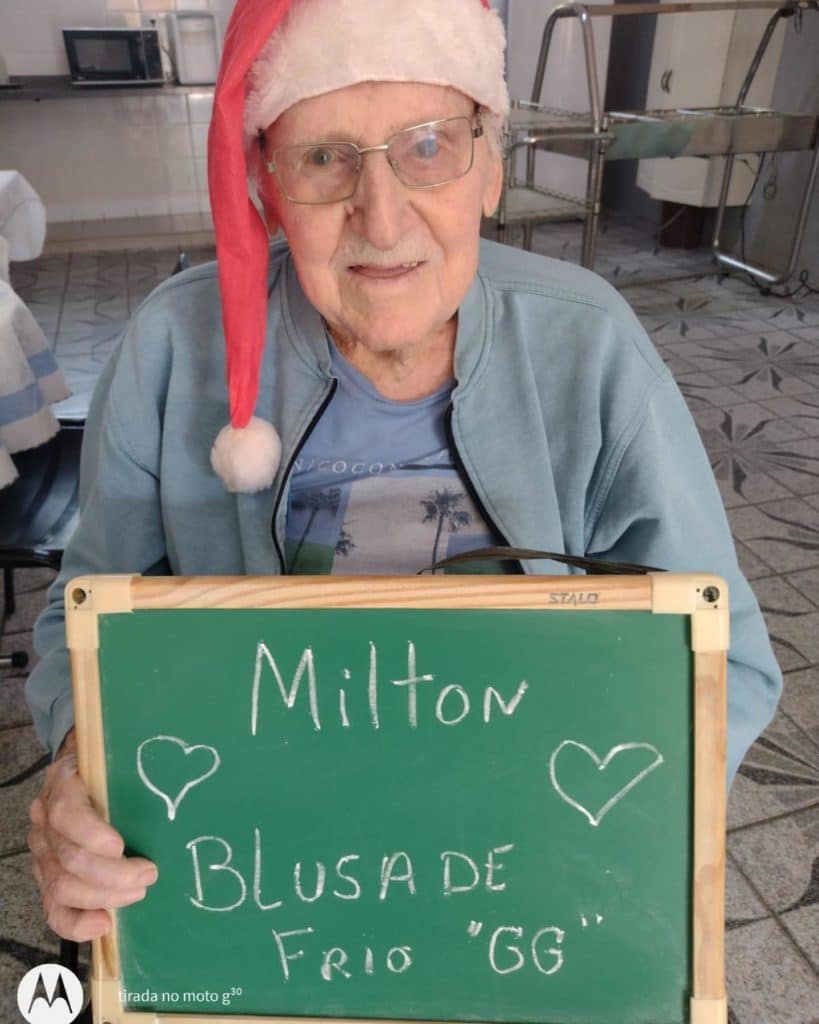 NICOCON
STALO
Milton
BLUSA DE
FRIO "GG"
tirada no moto g³⁰